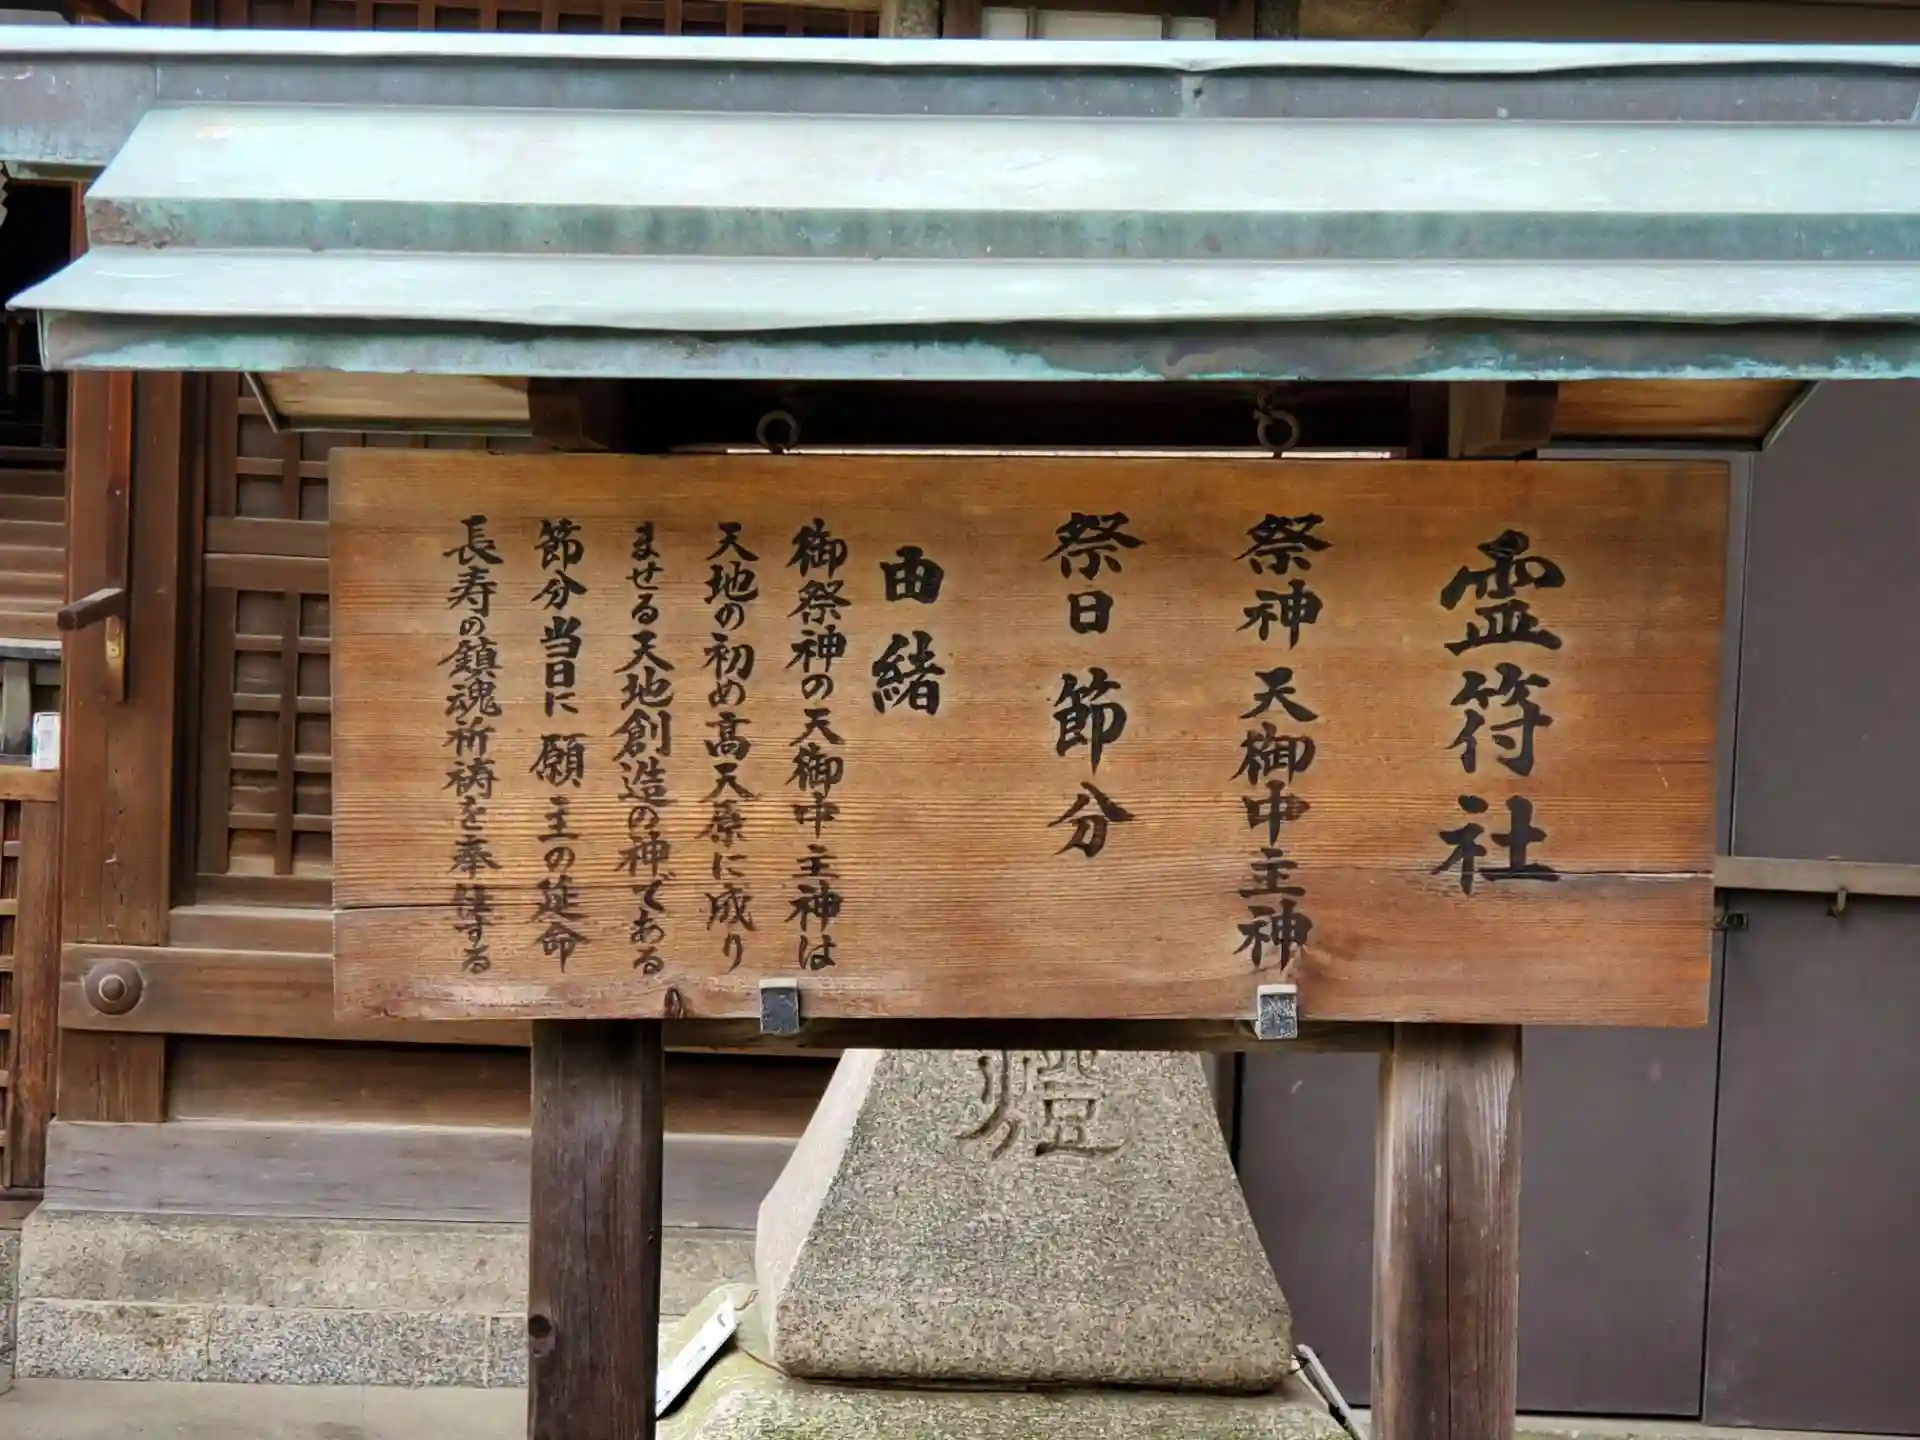 霊符社
祭神 天御中主神
祭日 節分
由緒
御祭神の天御中主神は
天地の初め高天原に成り
ませる天地創造の神である
節分当日に願主の延命
長寿の鎮魂祈祷を奉仕する
燈